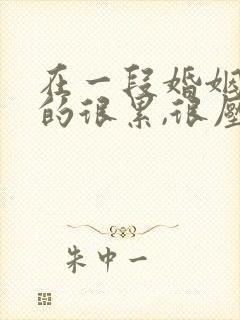 在一段婚姻
的很累,很压
朱中一